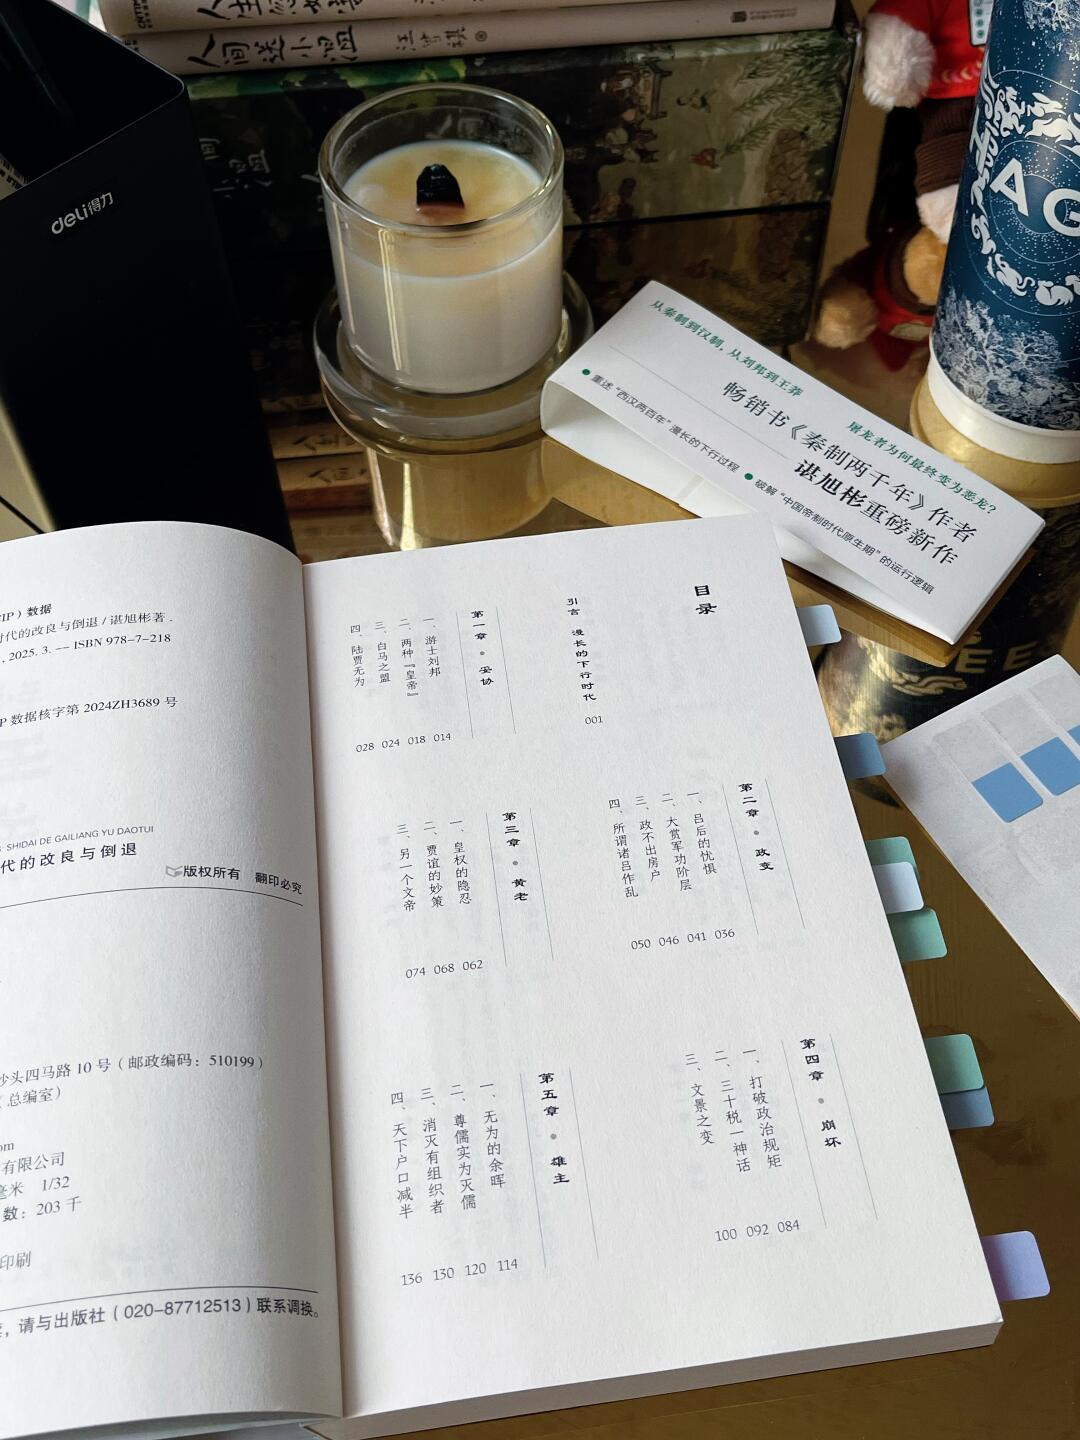 人间送小温
汪曾祺
deli得力
小温
间
AG
从秦制到汉制，从刘邦到王莽
屠龙者为何最终变为恶龙？
畅销书《秦制两千年》作者
谌旭彬重磅新作
重述“西汉两百年”漫长的下行过程
破解“中国帝制时代原生期”的运行逻辑
IP）数据
时代的改良与倒退 / 谌旭彬著．
, 2025. 3. -- ISBN 978-7-218
P 数据核字第 2024ZH3689 号
SHIDAI DE GAILIANG YU DAOTUI
代的改良与倒退
版权所有 翻印必究
沙头四马路 10 号（邮政编码：510199）
（总编室）
om
有限公司
毫米 1/32
数：203 千
印刷
，请与出版社（020-87712513）联系调换。
目录
引言 漫长的下行时代 001
第一章 • 妥协
一、游士刘邦 014
二、两种『皇帝』 018
三、白马之盟 024
四、陆贾无为 028
第二章 • 政变
一、吕后的忧惧 036
二、大赏军功阶层 041
三、政不出房户 046
四、所谓诸吕作乱 050
第三章 • 黄老
一、皇权的隐忍 062
二、贾谊的妙策 068
三、另一个文帝 074
第四章 • 崩坏
一、打破政治规矩 084
二、三十税一神话 092
三、文景之变 100
第五章 • 雄主
一、无为的余晖 114
二、尊儒实为灭儒 120
三、消灭有组织者 130
四、天下户口减半 136